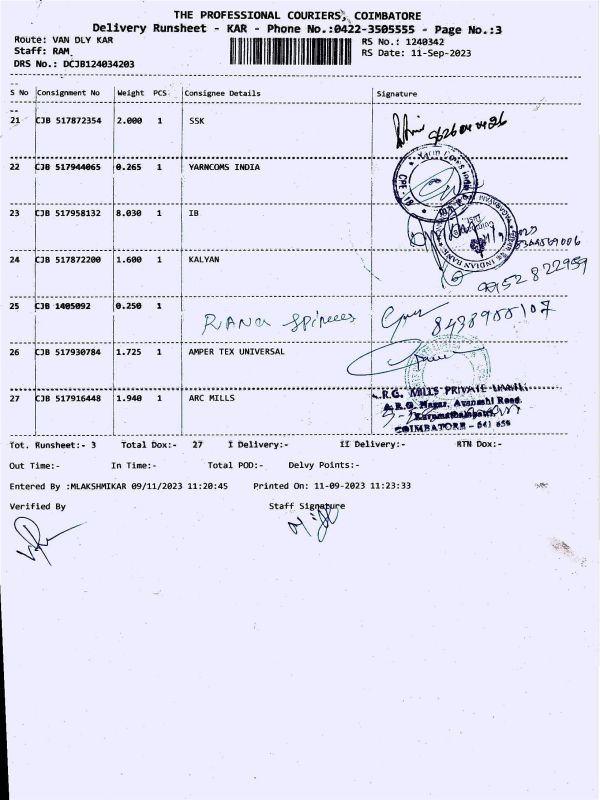 THE PROFESSIONAL COURIERS, COIMBATORE
Delivery Runsheet - KAR - Phone No.:0422-3505555 - Page No.:3
Route: VAN DLY KAR
RS No.: 1240342
Staff: RAM
RS Date: 11-Sep-2023
DRS No.: DCJB124034203
S No Consignment No Weight PCS Consignee Details Signature
21 CJB 517872354 2.000 1 SSK
22 CJB 517944065 0.265 1 YARNCOMS INDIA
23 CJB 517958132 8.030 1 IB
INDIAN BANK
24 CJB 517872200 1.600 1 KALYAN
99528 22959
25 CJB 1405092 0.250 1 RANA
26 CJB 517930784 1.725 1 AMPER TEX UNIVERSAL
27 CJB 517916448 1.940 1 ARC MILLS
.R.G. MILLS PRIVATE
Nagar, Avanashi Road,
COIMBATORE - 641 659
Tot. Runsheet:- 3 Total Dox:- 27 I Delivery:- II Delivery:- RTN Dox:-
Out Time:- In Time:- Total POD:- Delvy Points:-
Entered By :MLAKSHMIKAR 09/11/2023 11:20:45 Printed On: 11-09-2023 11:23:33
Verified By Staff Signature